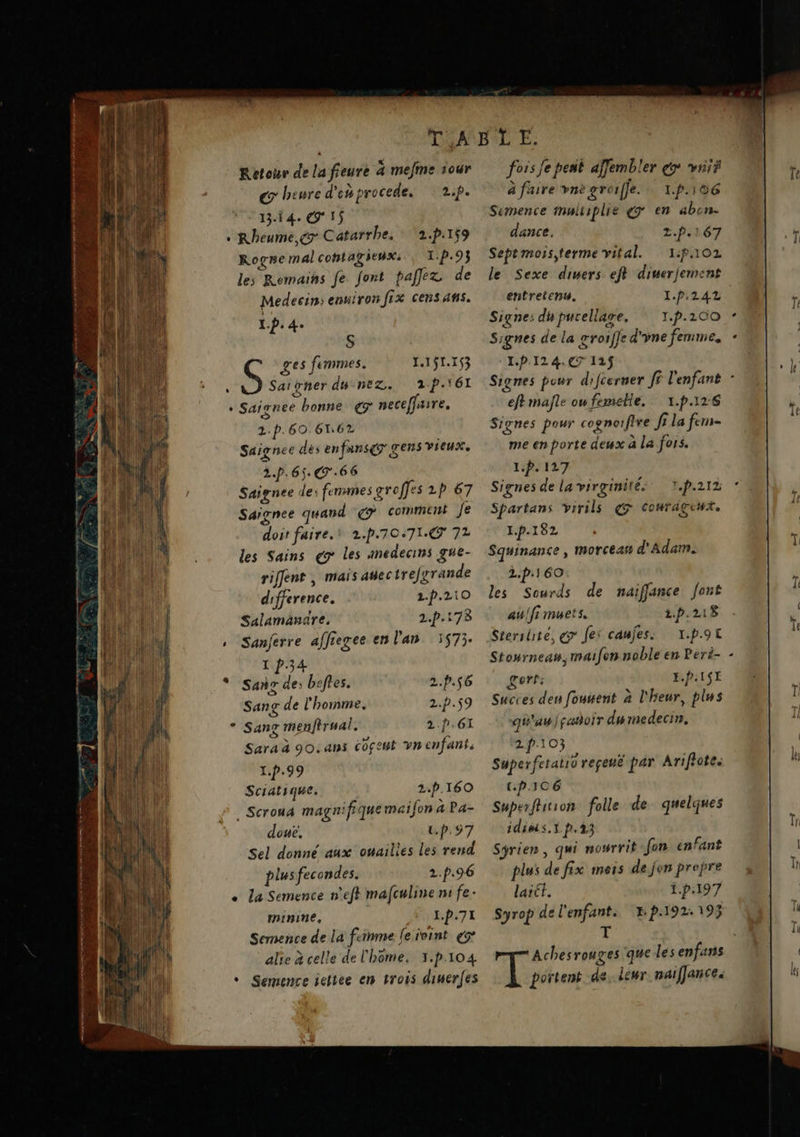 TABLE.
Retour de la fieure à mesme iour
& heure d'où procede. 2.p.
13.14. & 15
Rheume, & Catarrhe. 2.p.159
Rogne mal contagieux. 1.p.93
les Romains se sont passez de
Medecins enuiron six cens ans.
1.p.4.
S
Sages femmes. 1.151.153
Saigner du nez. 2.p.161
Saignee bonne & necessaire.
2.p.60.61.62
Saignee des enfans & gens vieux.
2.p.65.&.66
Saignee des femmes grosses 2p 67
Saignee quand & comment se
doit faire. 2.p.70.71.& 72
les Sains & les medecins gue-
rissent, mais auec tresgrande
difference. 2.p.210
Salamandre. 2.p.178
Sanserre assiegee en l'an 1573.
1 p.34
Sang des bestes. 2.p.56
Sang de l'homme. 2.p.59
Sang menstrual. 2.p.61
Sara à 90. ans cõçeut vn enfant.
1.p.99
Sciatique. 2.p.160
Scroua magnifique maison à Pa-
douë. 1.p.97
Sel donné aux ouailles les rend
plus fecondes. 2.p.96
la Semence n'est masculine ni fe-
minine. 1.p.71
Semence de la fẽme se ioint &
alie à celle de l'hõme. 1.p.104
Semence iettee en trois diuerses
fois se peut assembler & vnir
à faire vne grosse. 1.p.106
Semence multiplie & en abon-
dance. 2.p.167
Sept mois, terme vital. 1.p.102
le Sexe diuers est diuersement
entretenu. 1.p.242
Signes du pucellage. 1.p.200
Signes de la grosse d'vne femme.
1.p.124.& 125
Signes pour discerner si l'enfant
est masle ou femelle. 1.p.126
Signes pour cognoistre si la fem-
me en porte deux à la fois.
1.p.127
Signes de la virginité. 1.p.212
Spartans virils & courageux.
1.p.182
Squinance, morceau d'Adam.
2.p.160
les Sourds de naissance sont
aussi muets. 2.p.218
Sterilité, & ses causes. 1.p.91
Stourneau, maison noble en Peri-
gort. 1.p.151
Succes deu souuent à l'heur, plus
qu'au sçauoir du medecin.
2.p.103
Superfetatiõ reçeuë par Aristote.
1.p.106
Superstition folle de quelques
idiots. 1.p.23
Syrien, qui nourrit son enfant
plus de six mois de son propre
laict. 1.p.197
Syrop de l'enfant. 1.p.192.193
T
Taches rouges que les enfans
portent de leur naissance.